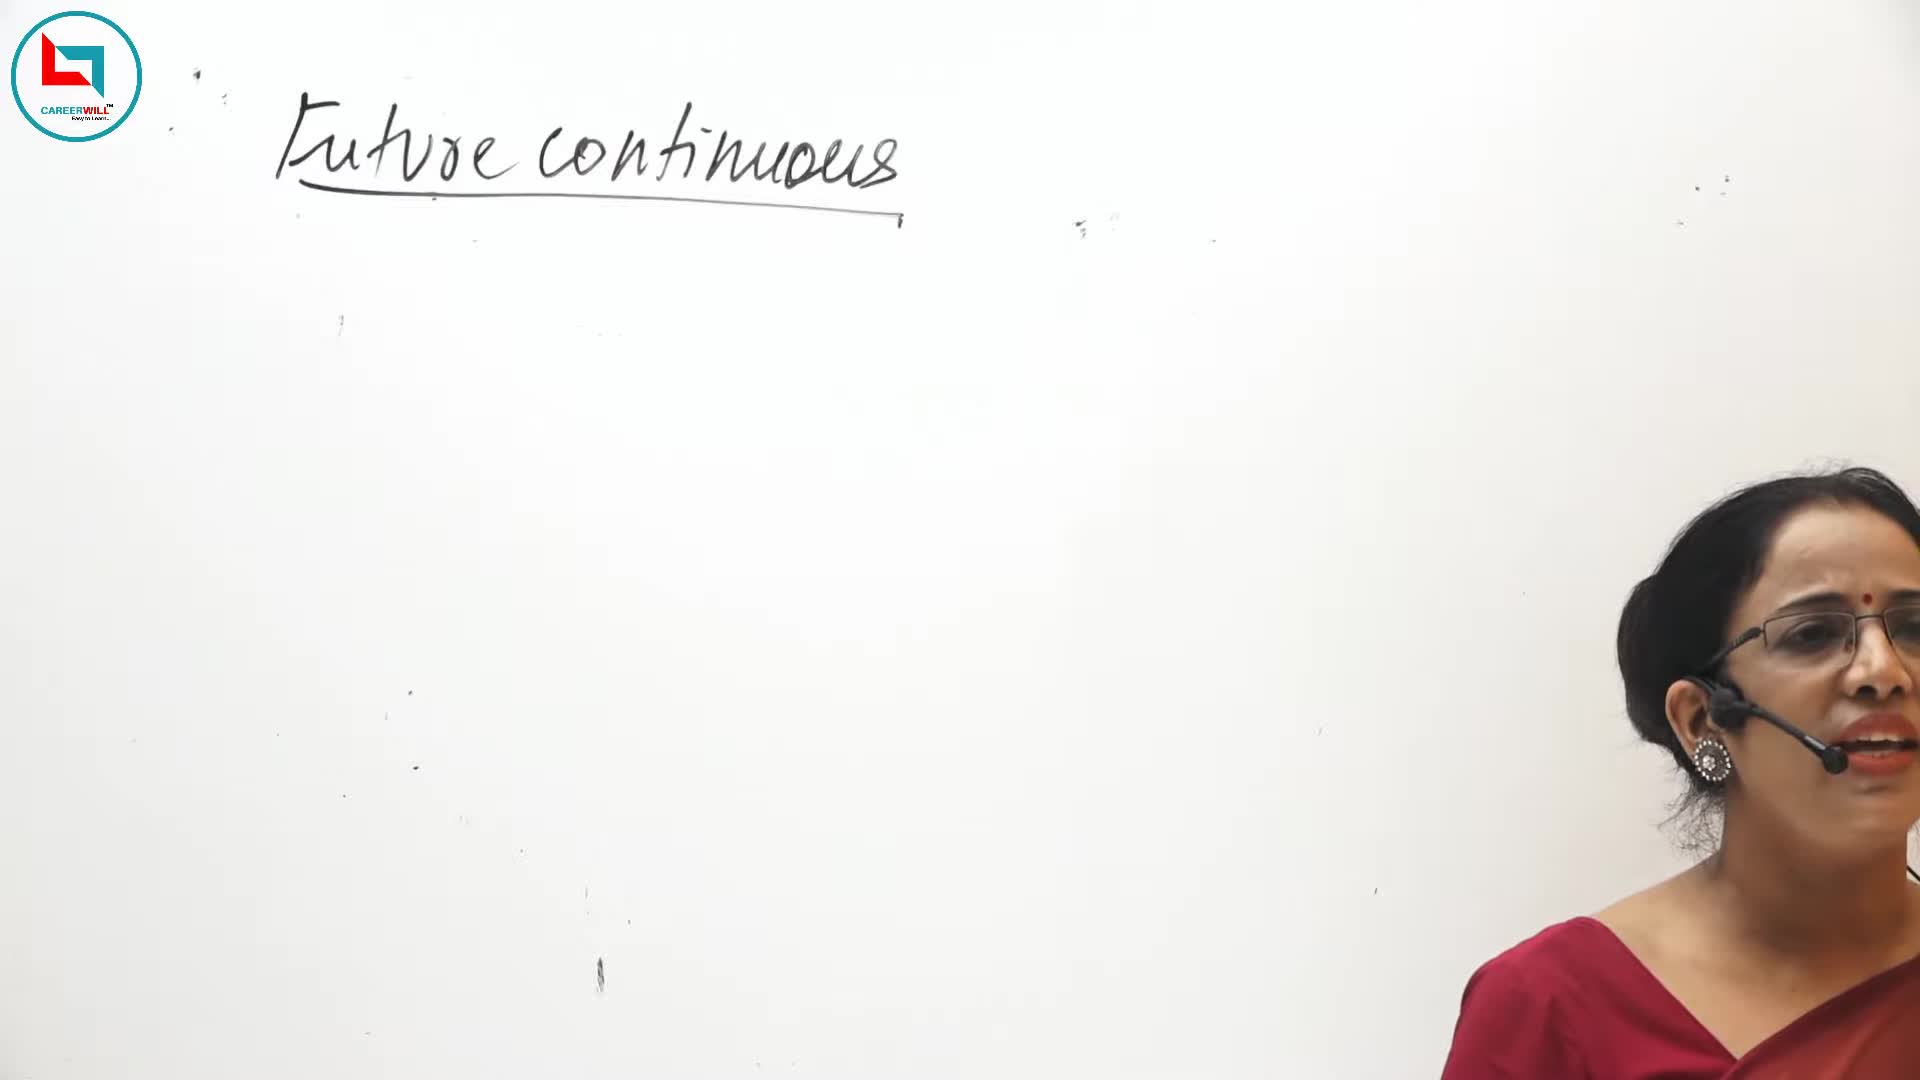 CAREERWILL™
Easy to Learn..
Future continuous